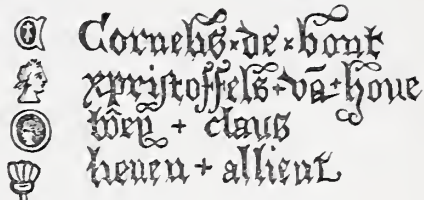 Cornelis × de × bont
xpristoffels + vā + hove
claus
heven + allient